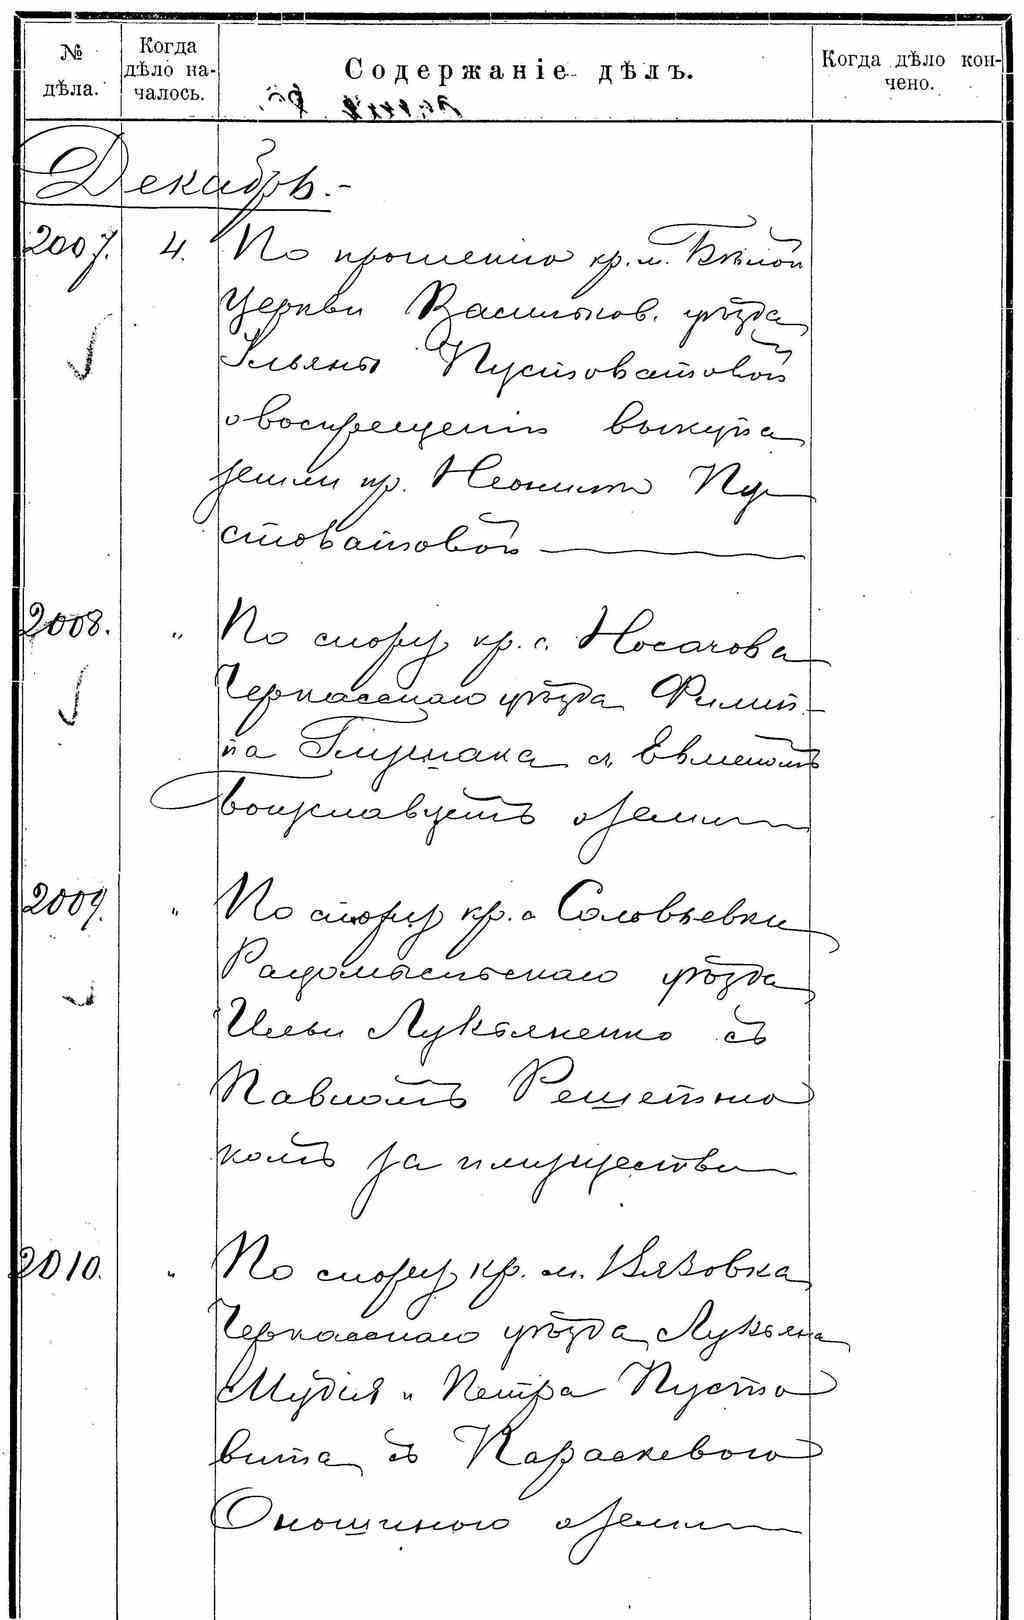 № дѣла.
Когда дѣло началось.
Содержаніе дѣлъ.
Когда дѣло кончено.
Декабрь.-
2007. 4. По прошенію кр. м. Бѣлой
Церкви Васильков. уѣзда
Ульяны Пустоватовой
о воспрещеніи выкупа
земли кр. Неонилѣ Пу-
стоватовой
2008. " По спору кр. с. Носачова
Черкасскаго уѣзда Филип-
па съ Евменомъ
о земли
2009. " По спору кр. с Соловьевки
Радомысльскаго уѣзда
Ильи Лукьяненко съ
Павломъ Решетню
комъ за имущество
2010. " По спору кр. м. Вязовка
Черкасскаго уѣзда Лукьяна
и Петра Пусто
вита съ Параскевою
Оношиною о земли